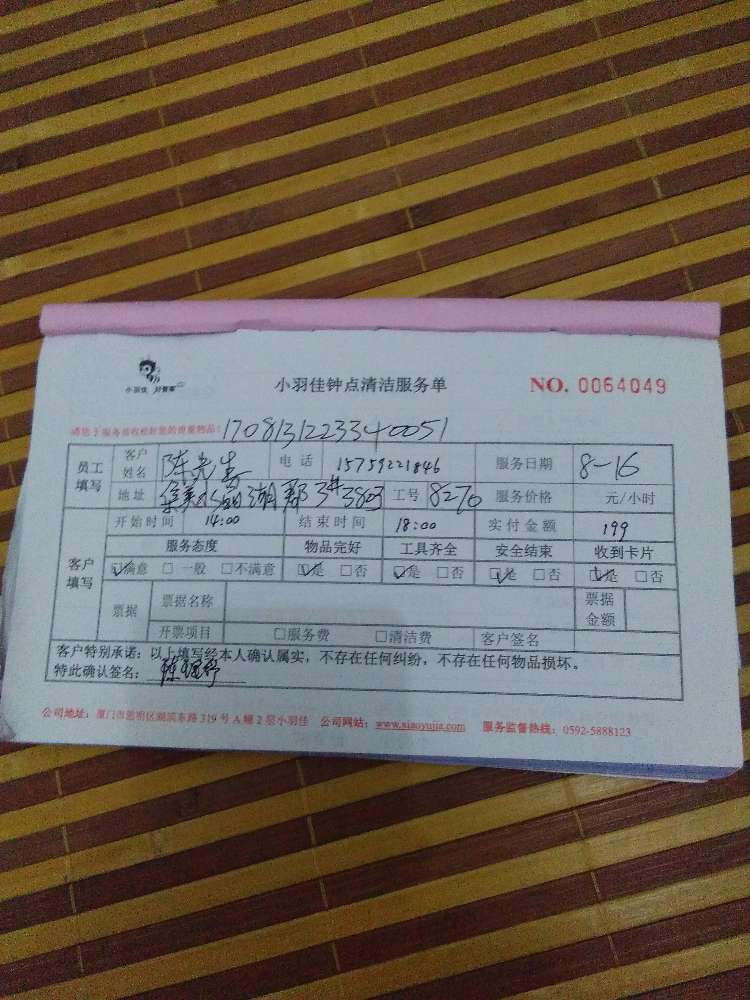 小羽佳 好管家
小羽佳钟点清洁服务单
NO. 0064049
请您于服务前收检好您的贵重物品: 1708131223340051
员工填写 客户姓名 陈先生 电话 15759221846 服务日期 8-16
地址 水晶湖郡3#3803 工号 8270 服务价格 元/小时
客户填写 开始时间 14:00 结束时间 18:00 实付金额 199
服务态度 物品完好 工具齐全 安全结束 收到卡片
☑满意 □一般 □不满意 ☑是 □否 ☑是 □否 ☑是 □否 ☑是 □否
票据 票据名称 票据金额
开票项目 □服务费 □清洁费 客户签名
客户特别承诺: 以上填写经本人确认属实，不存在任何纠纷，不存在任何物品损坏。
特此确认签名: 陈
公司地址: 厦门市思明区湖滨东路 319 号 A 幢 2 层小羽佳 公司网站: www.xiaoyujia.com 服务监督热线: 0592-5888123